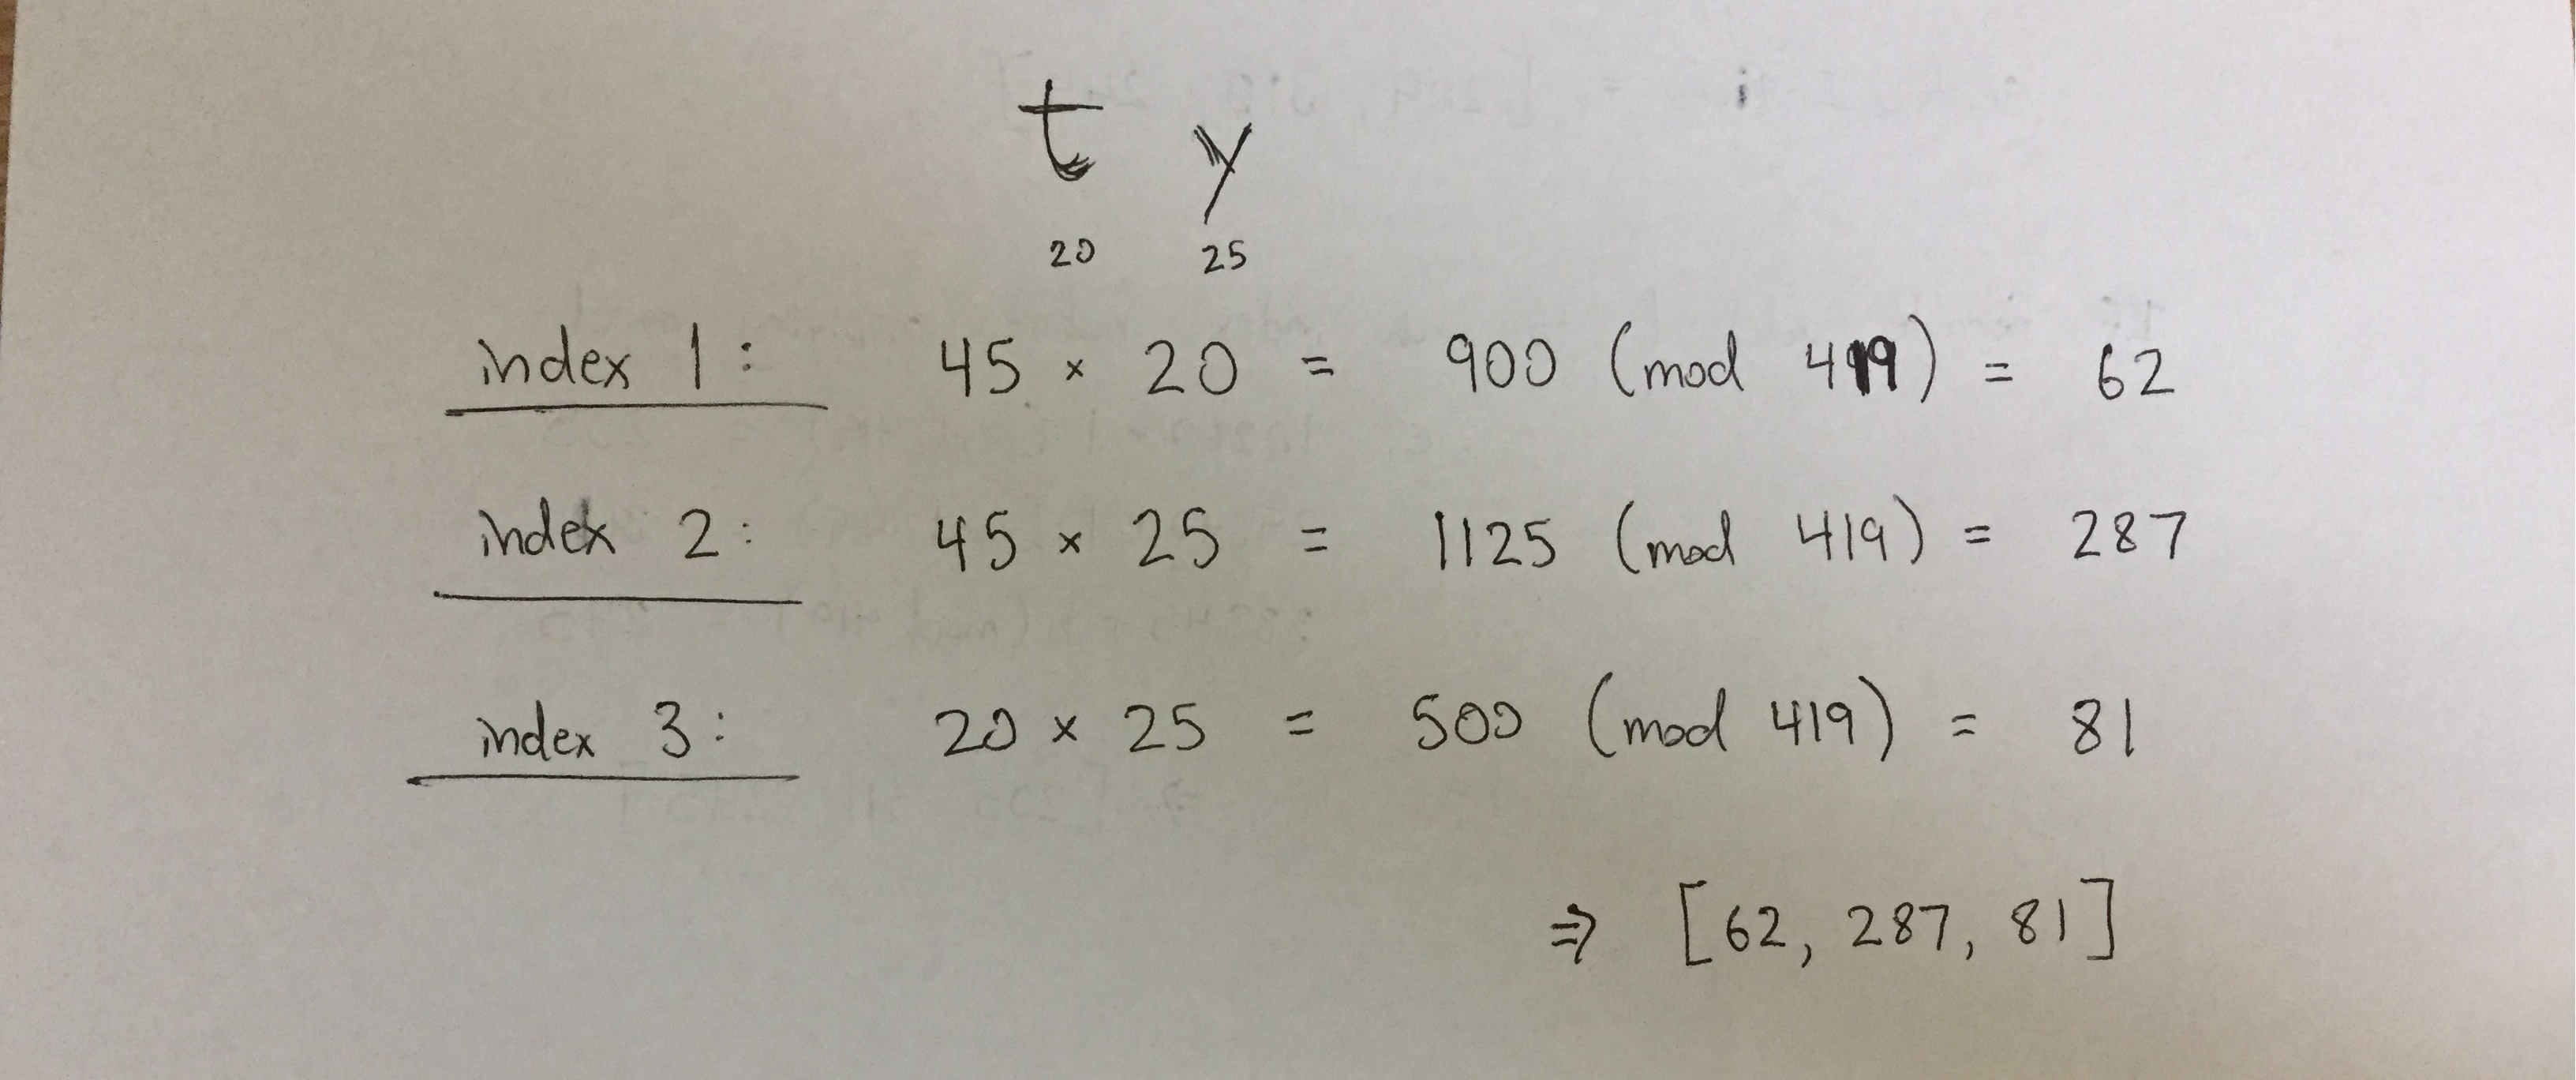 t y
20 25
index 1: 45 × 20 = 900 (mod 419) = 62
index 2: 45 × 25 = 1125 (mod 419) = 287
index 3: 20 × 25 = 500 (mod 419) = 81
⇒ [62, 287, 81]